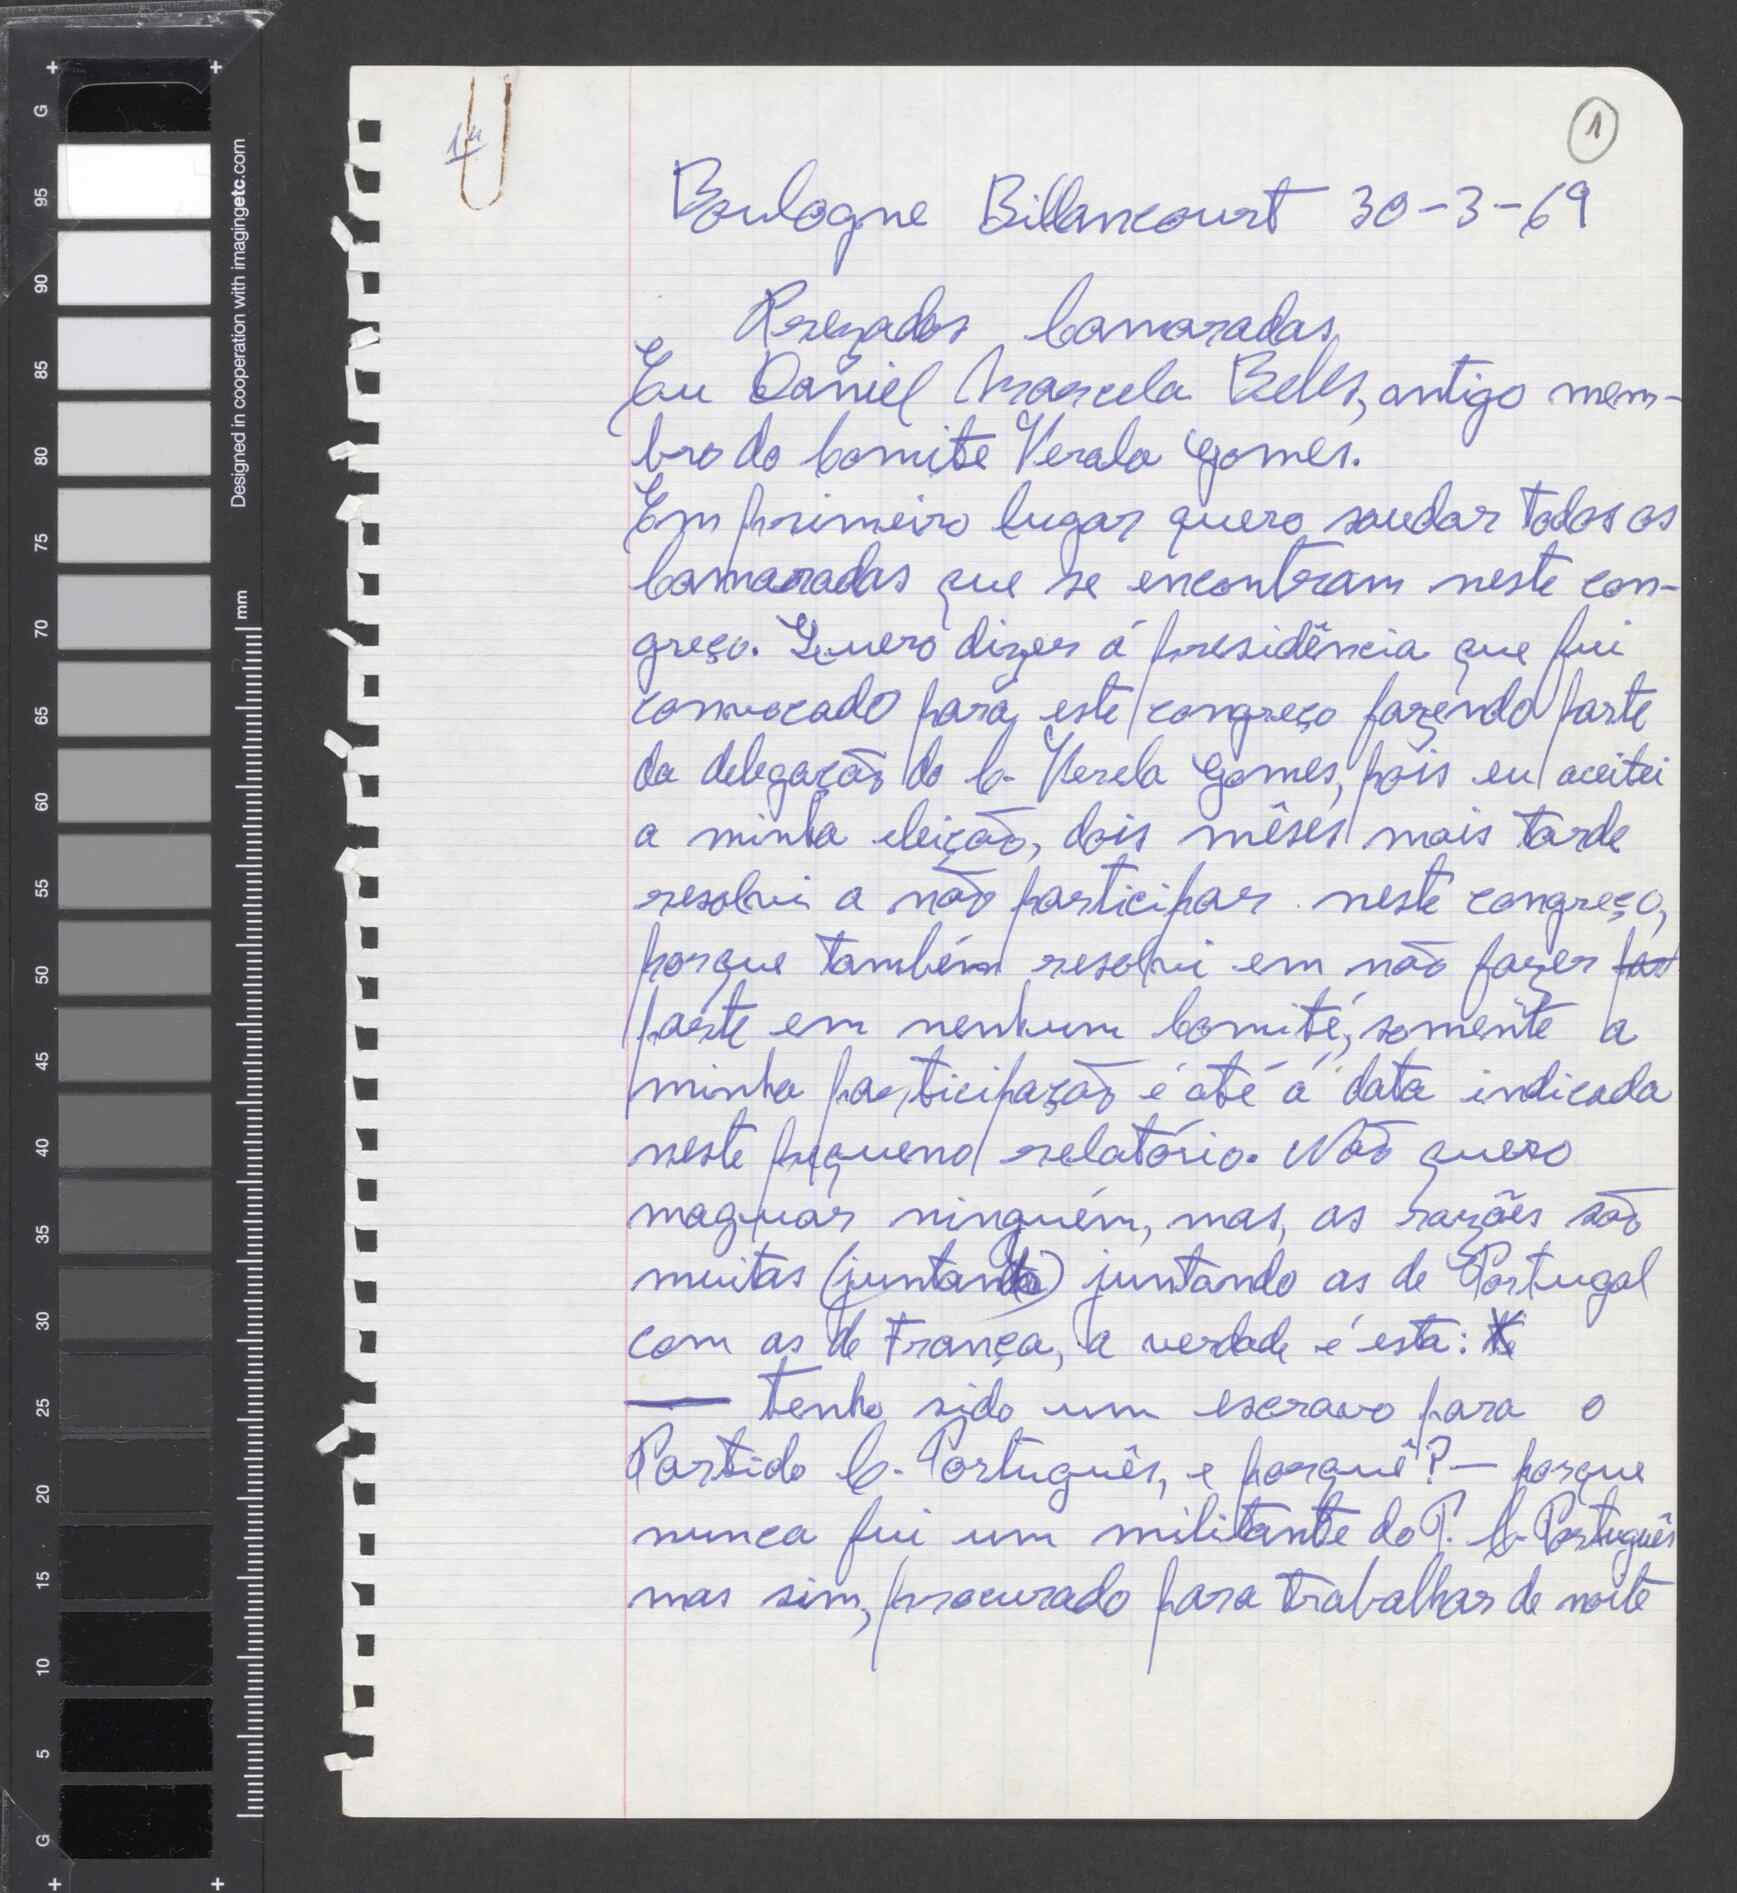 1
Boulogne Billancourt 30-3-69
Prezados Camaradas,
Eu Daniel Marcela Belles, antigo mem-
bro do Comite Verala Gomes.
Em primeiro lugar quero saudar todos os
Camaradas que se encontram neste con-
greço. Quero dizer á presidência que fui
convocado para este congreço fazendo parte
da delegação do C. Verela Gomes, pois eu aceitei
a minha eleição, dois mêses mais tarde
resolvi a não participar neste congreço,
porque também resolvi em não fazer part
parte em nenhum Comité, somente a
minha participação é até á data indicada
neste pequeno relatório. Não quero
maguar ninguém, mas, as razões são
muitas (juntando) juntando as de Portugal
com as de França, a verdade é esta:
— tenho sido um escravo para o
Partido C. Português, e porquê? — porque
nunca fui um militante do P. C. Português
mas sim, procurado para trabalhar de noite
Designed in cooperation with imagingetc.com
mm
G
95
90
85
80
75
70
65
60
55
50
45
40
35
30
25
20
15
10
5
G